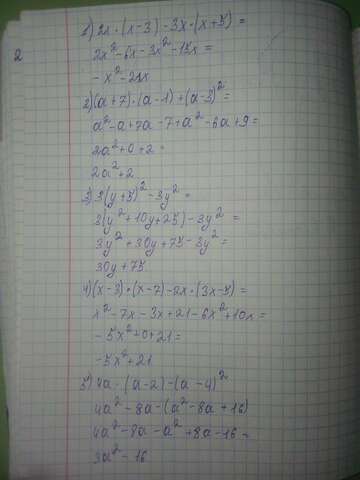 1) 2x · (x-3) - 3x · (x+5) =
2
2x² - 6x - 3x² - 15x =
- x² - 21x
2) (a+7) · (a-1) + (a-3)² =
a² - a + 7a - 7 + a² - 6a + 9 =
2a² + 0 + 2 =
2a² + 2
3) 3(y+5)² - 3y² =
3(y² + 10y + 25) - 3y² =
3y² + 30y + 75 - 3y² =
30y + 75
4) (x-3) · (x-7) - 2x · (3x-5) =
x² - 7x - 3x + 21 - 6x² + 10x =
- 5x² + 0 + 21 =
-5x² + 21
5) 4a · (a-2) - (a-4)²
4a² - 8a - (a² - 8a + 16)
4a² - 8a - a² + 8a - 16 =
3a² - 16